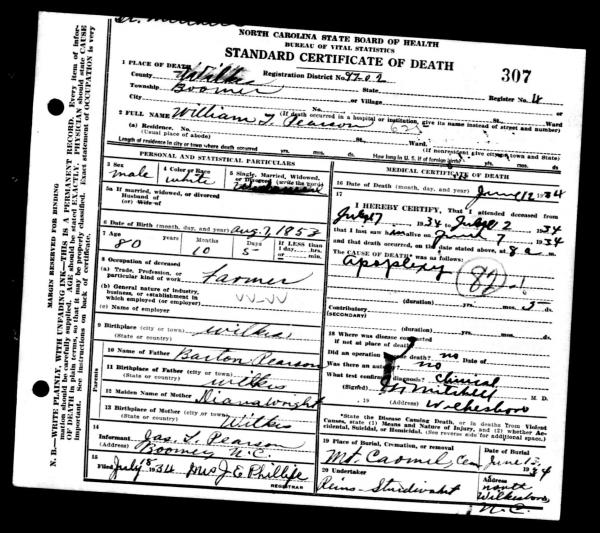 NORTH CAROLINA STATE BOARD OF HEALTH
BUREAU OF VITAL STATISTICS
STANDARD CERTIFICATE OF DEATH
307
1 PLACE OF DEATH
County Wilkes Registration District No. 97-02
Boomer State Register No. 4
City or Village No. St. Ward
(If death occurred in a hospital or institution, give its name instead of street and number)
2 FULL NAME William T. Pearson
(a) Residence. No. St. Ward.
(Usual place of abode) (If nonresident give city or town and State)
Length of residence in city or town where death occurred yrs. mos. ds. How long in U. S. if of foreign birth? yrs. mos. ds.
PERSONAL AND STATISTICAL PARTICULARS
3 Sex male
4 Color or Race white
5 Single, Married, Widowed, or Divorced (write the word)
5a If married, widowed, or divorced
Husband of
(or) Wife of
6 Date of Birth (month, day, and year) Aug. 7, 1853
7 Age 80 Months 10 Days 5 If LESS than 1 day, hrs. or min.
8 Occupation of deceased
(a) Trade, Profession, or particular kind of work. Farmer
(b) General nature of industry, business, or establishment in which employed (or employer)
(c) Name of employer
9 Birthplace (city or town) Wilkes
(State or country)
Parents
10 Name of Father Barton Pearson
11 Birthplace of Father (city or town)
(State or country) Wilkes
12 Maiden Name of Mother Diana Wright
13 Birthplace of Mother (city or town)
(State or country) Wilkes
14 Informant Jas. L. Pearson
(Address) Boomer N.C.
15 Filed July 18 1934 Mrs J. E. Phillips
REGISTRAR
MEDICAL CERTIFICATE OF DEATH
16 Date of Death (month, day, and year) June 12 1934
17 I HEREBY CERTIFY, That I attended deceased
from 7 1934 to 12 1934
that I last saw him alive on June 7 1934
and that death occurred, on the date stated above, at 8 a m.
The CAUSE OF DEATH* was as follows:
apoplexy
(duration) yrs. mos. 5 ds.
Contributory
(SECONDARY)
(duration) yrs. mos. ds.
18 Where was disease contracted
if not at place of death?
Did an operation precede death? no Date of
Was there an autopsy? no
What test confirmed diagnosis? Clinical
(Signed) Mitchell M. D.
, 19 (Address) Wilkesboro
*State the Disease Causing Death, or in deaths from Violent Causes, state (1) Means and Nature of Injury, and (2) whether Accidental, Suicidal, or Homicidal. (See reverse side for additional space.)
19 Place of Burial, Cremation, or removal Date of Burial
Mt Carmel, Cem June 13, 1934
20 Undertaker Address
Reins-Sturdivant North Wilkesboro N.C.
MARGIN RESERVED FOR BINDING
N. B.—WRITE PLAINLY, WITH UNFADING INK—THIS IS A PERMANENT RECORD. Every item of information should be carefully supplied. AGE should be stated EXACTLY. PHYSICIAN should state CAUSE OF DEATH in plain terms, so that it may be properly classified. Exact statement of OCCUPATION is very important. See instructions on back of certificate.